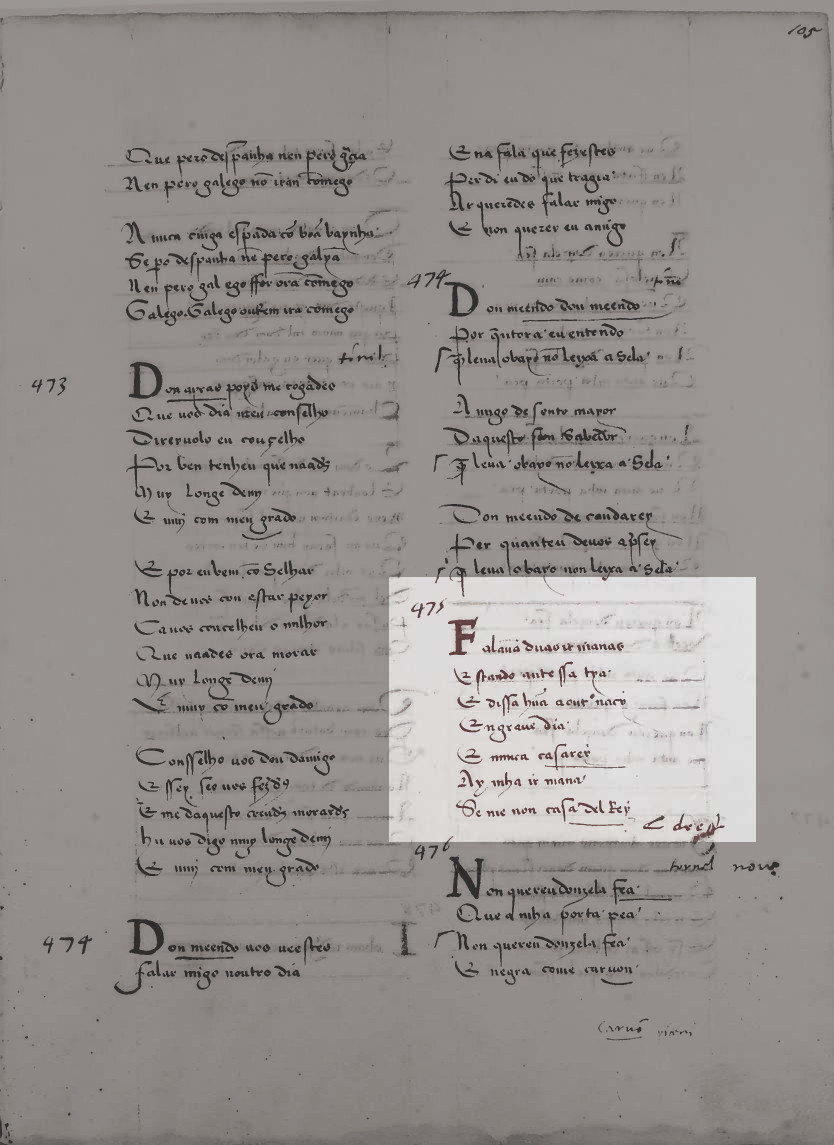 105
Que pero despanha nen pero gꝛ̃cia
Nen pero galego nõ iran comego
A nuca cinga espada cõ boã baynha
Se po despanha nẽ pero galyza
Nen pero gal ego ffor ora comego
Galego Galego outrem ira comego
tornel
473
Don ayras poys me rogades
Que uos dia meu conselho
Direyuolo eu conçelho
Por ben tenheu que uaades
Muy longe demj
E muj com meu grado
E por eu bem cõ Selhar
Non deuos con estar peyor
Ca uos concelheu o milhor
Que uaades ora morar
Muy Longe demj
E muy cõ meu grado
Consselho uos dou damigo
E ssey seo uos fezerdes
E me daquesto creuerdes morardes
hu uos digo muy longe demj
E muj com meu grado
474
Don meendo uos ueestes
falar migo noutro dia
E na fala que fezestes
Perdi eu do que tragia
Ar queredes falar migo
E non querer eu amigo
474
torñ
Don meendo don meendo
Por quãtora eu entendo
q̃ leua obayo nõ leyxa a Sela
Amigo de Souto mayor
Daquesto son Sabedor
q̃ leua obayo nõ leyxa a Sela
Don meendo de candarey
Per quanteu deuos apsey
q̃ leua obayo non leyxa a Sela
475
Falauã duas irmanas
Estando ante ssa tya
E dissa hũa a outr nacy
En graue dia
E nunca casarey
Ay mha ir mana
Se me non casa del Rey
476
tornel
Non quereu donzela fea
Que a mha porta pea
Non quereu donzela fea
E negra come caruon
Caruõ